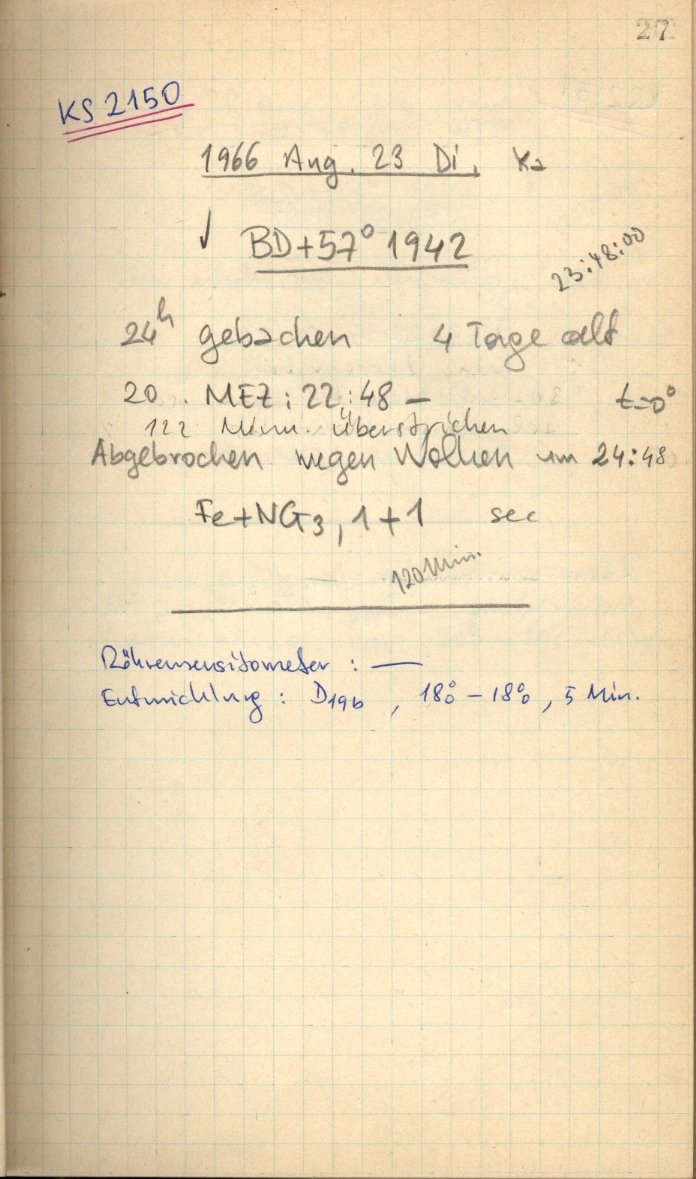 27
KS 2150
1966 Aug. 23 Di. Ka
✓ BD+57° 1942
23:48:00
24h gebacken 4 Tage alt
20. MEZ: 22:48 – t=0°
122 Minu. überstrichen
Abgebrochen wegen Wolken um 24:48
Fe+NG3, 1+1 sec
120 Min.
Röhrensensitometer : —
Entwicklung : D19b , 18°0 – 18°0 , 5 Min.